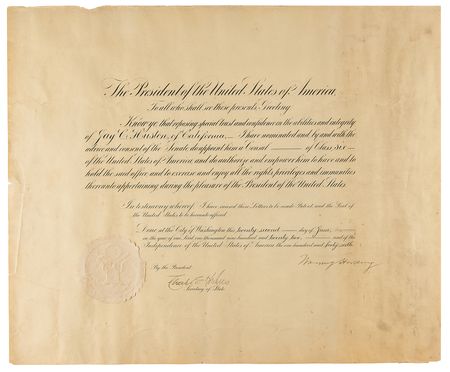 The President of the United States of America.
To all who shall see these presents, Greeting:
Know ye, that reposing special trust and confidence in the abilities and integrity
of Jay C. Huston, of California, I have nominated and by and with the
advice and consent of the Senate do appoint him a Consul of Class six
of the United States of America and do authorize and empower him to have and to
hold the said office and to exercise and enjoy all the rights privileges and immunities
thereunto appertaining during the pleasure of the President of the United States.
In testimony whereof, I have caused these Letters to be made Patent and the Seal of
the United States to be hereunto affixed.
Done at the City of Washington this twenty second day of June,
in the year of our Lord one thousand nine hundred and twenty two, and of the
Independence of the United States of America the one hundred and forty sixth.
Warren G Harding
By the President:
Charles E. Hughes
Secretary of State.